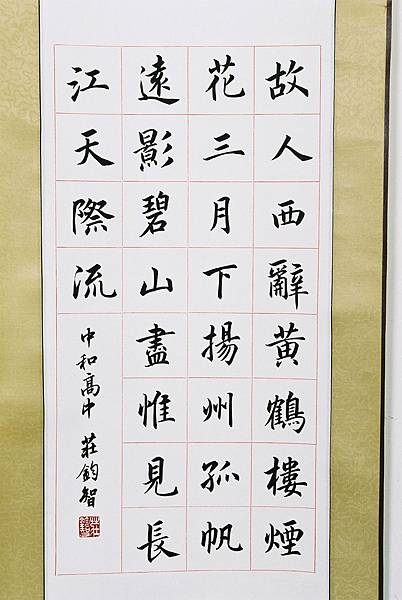 故人西辭黃鶴樓煙
花三月下揚州孤帆
遠影碧山盡惟見長
江天際流
中和高中 莊鈞智